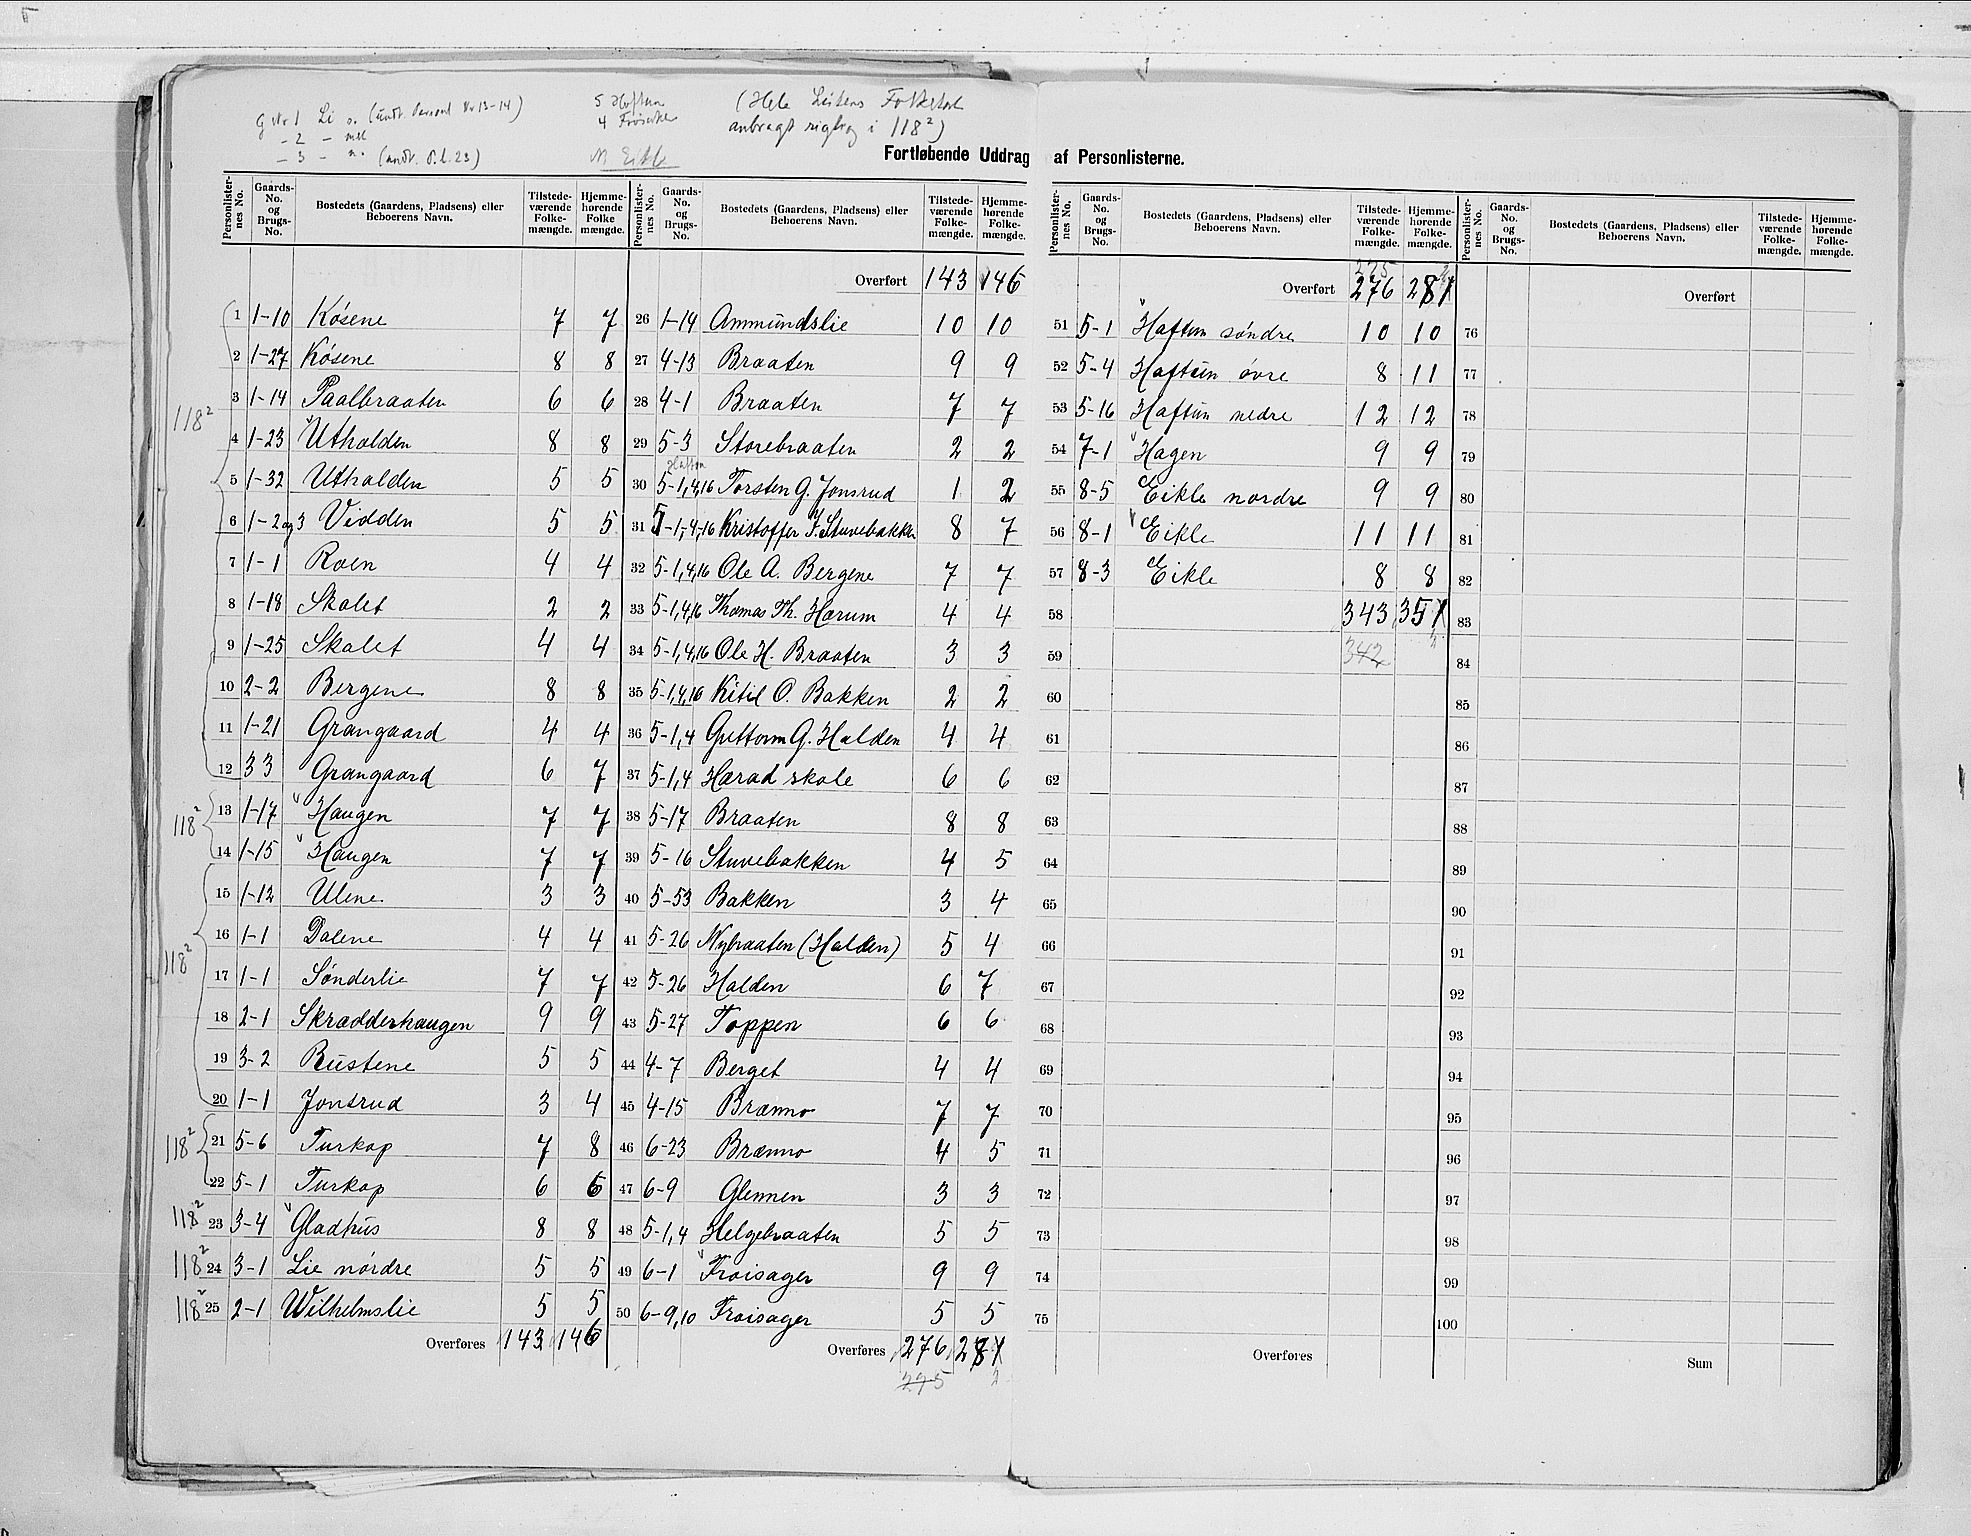 G Nr 1 Li s. (undt. Personl Nr 13-14)
- 2 - mel
- 3 - n. (undt. P.l. 23)
5 Haftun
4 Frøisaker
M Eikle
(Hele Listens Folketal
anbragt rigtig i 118²)
Fortløbende Uddrag af Personlisterne.
Personlisternes No. Gaards-No. og Brugs-No. Bostedets (Gaardens, Pladsens) eller Beboerens Navn. Tilstedeværende Folkemængde. Hjemmehørende Folkemængde.
1 1-10 Kósene 7 7
2 1-27 Kósene 8 8
118² 3 1-14 Paalbraaten 6 6
4 1-23 Uthalden 8 8
5 1-32 Uthalden 5 5
6 1-2 og 3 Vidden 5 5
7 1-1 Roen 4 4
8 1-18 Skalet 2 2
9 1-25 Skalet 4 4
10 2-2 Bergene 8 8
11 1-21 Grangaard 4 4
12 3 3 Grangaard 6 7
118² 13 1-17 Haugen 7 7
14 1-15 Haugen 7 7
15 1-12 Ulene 3 3
16 1-1 Dalene 4 4
118² 17 1-1 Sónderlie 7 7
18 2-1 Skrædderhaugen 9 9
19 3-2 Rustene 5 5
20 1-1 Jonsrud 3 4
118² 21 5-6 Turkop 7 8
22 5-1 Turkop 6 6
118² 23 3-4 Gladhus 8 8
118² 24 3-1 Lie nórdre 5 5
118² 25 2-1 Wilhelmslie 5 5
Overføres 143 146
Personlisternes No. Gaards-No. og Brugs-No. Bostedets (Gaardens, Pladsens) eller Beboerens Navn. Tilstedeværende Folkemængde. Hjemmehørende Folkemængde.
Overført 143 146
26 1-14 Ammundslie 10 10
27 4-13 Braaten 9 9
28 4-1 Braaten 7 7
29 5-3 Storebraaten 2 2
Haftun
30 5-1,4,16 Torsten G. Jonsrud 1 2
31 5-1,-4,-16 Kristoffer J. Stuvebakken 8 7
32 5-1,4,16 Ole A. Bergene 7 7
33 5-1,4,16 Thomas Th. Hærum 4 4
34 5-1,4,16 Ole H. Braaten 3 3
35 5-1,4,16 Kitil O. Bakken 2 2
36 5-1,4 Guttorm G. Halden 4 4
37 5-1,4 Hærad skole 6 6
38 5-17 Braaten 8 8
39 5-16 Stuvebakken 4 5
40 5-53 Bakken 3 4
41 5-26 Nybraaten (Halden) 5 4
42 5-26 Halden 6 7
43 5-27 Toppen 6 6
44 4-7 Berget 4 4
45 4-15 Brænno 7 7
46 6-23 Brænno 4 5
47 6-9 Glennen 3 3
48 5-1,4 Helgebraaten 5 5
49 6-1 Froisager 9 9
50 6-9,10 Froisager 5 5
Overføres 276 281
275 2
Personlisternes No. Gaards-No. og Brugs-No. Bostedets (Gaardens, Pladsens) eller Beboerens Navn. Tilstedeværende Folkemængde. Hjemmehørende Folkemængde.
275 2
Overført 276 281
51 5-1 Haftun sóndre 10 10
52 5-4 Haftun óvre 8 11
53 5-16 Haftun nedre 12 12
54 7-1 Hagen 9 9
55 8-5 Eikle nordre 9 9
56 8-1 Eikle 11 11
57 8-3 Eikle 8 8
58 343 351
59 342 2
60
61
62
63
64
65
66
67
68
69
70
71
72
73
74
75
Overføres
Personlisternes No. Gaards-No. og Brugs-No. Bostedets (Gaardens, Pladsens) eller Beboerens Navn. Tilstedeværende Folkemængde. Hjemmehørende Folkemængde.
Overført
76
77
78
79
80
81
82
83
84
85
86
87
88
89
90
91
92
93
94
95
96
97
98
99
100
Sum